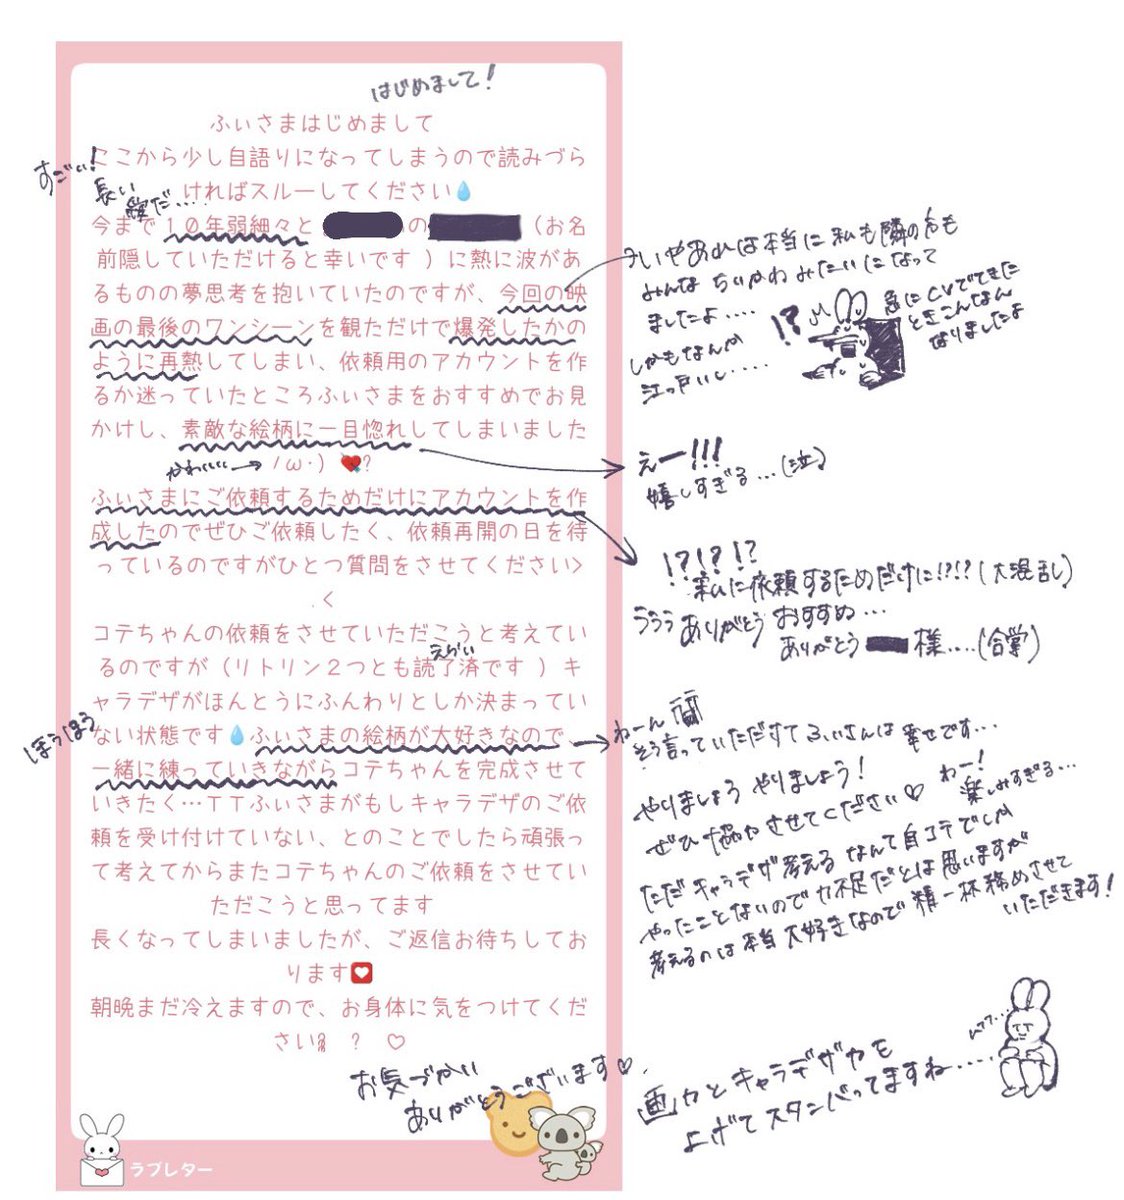 はじめまして！
ふぃさまはじめまして
ここから少し自語りになってしまうので読みづら
ければスルーしてください💧
すごい！
長い
愛だ‥‥
今まで１０年弱細々と
の
（お名
前隠していただけると幸いです ）に熱に波があ
るものの夢思考を抱いていたのですが、今回の映
画の最後のワンシーンを観ただけで爆発したかの
ように再熱してしまい、依頼用のアカウントを作
るか迷っていたところふぃさまをおすすめでお見
かけし、素敵な絵柄に一目惚れしてしまいました
かわいい→
/ω･) 💘?
ふぃさまにご依頼するためだけにアカウントを作
成したのでぜひご依頼したく、依頼再開の日を待
っているのですがひとつ質問をさせてください>
.<
コテちゃんの依頼をさせていただこうと考えてい
るのですが（リトリン２つとも読了済です ）キ
えらい
ャラデザがほんとうにふんわりとしか決まってい
ない状態です💧ふぃさまの絵柄が大好きなので、
ほうほう
一緒に練っていきながらコテちゃんを完成させて
いきたく…ＴＴふぃさまがもしキャラデザのご依
頼を受け付けていない、とのことでしたら頑張っ
て考えてからまたコテちゃんのご依頼をさせてい
ただこうと思ってます
長くなってしまいましたが、ご返信お待ちしてお
ります💟
朝晩まだ冷えますので、お身体に気をつけてくだ
さい
? ♡
お気づかい
ありがとうございます♡
ラブレター
いやあれは本当に私も隣の方も
みんなちいかわみたいになって
ましたよ‥‥
しかもなんか
江戸いし‥‥
!?
急にCVでてきた
ときこんなん
なりましたよ
えー!!!
嬉しすぎる…(泣)
!?!?!?
私に依頼するためだけに!?!?(大混乱)
ううう ありがとうおすすめ…
ありがとう
様‥‥(合掌)
ねーん
そう言っていただけてふぃさんは幸せです…
やりましょうやりましょう！
ぜひ協力させてください♡
わー！
楽しみすぎる…
ただキャラデザ考えるなんて自コテでしか
やったことないので力不足だとは思いますが
考えるのは本当大好きなので精一杯務めさせて
いただきます！
画力とキャラデザ力を
上げてスタンバってますね‥‥